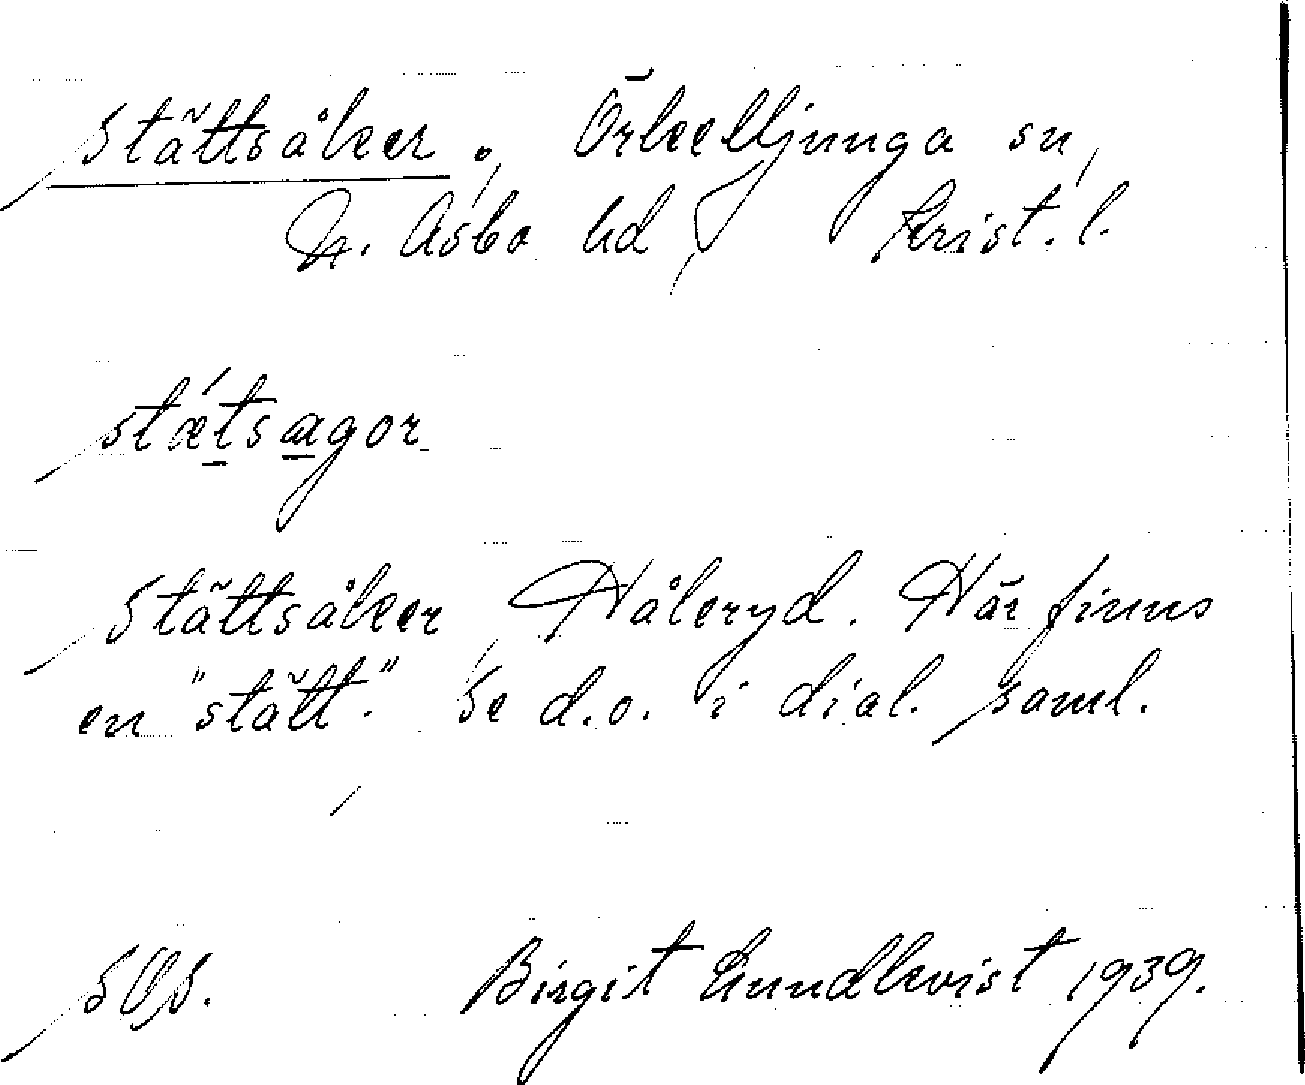 Stättsåker, Örkelljunga sn,
N. Åsbo hd, Krist. l.
stǽtsagor
Stättsåker, Håleryd. Här finns
en "stätt". Se d.o. i dial. saml.
SOS. Birgit Lundkvist 1939.